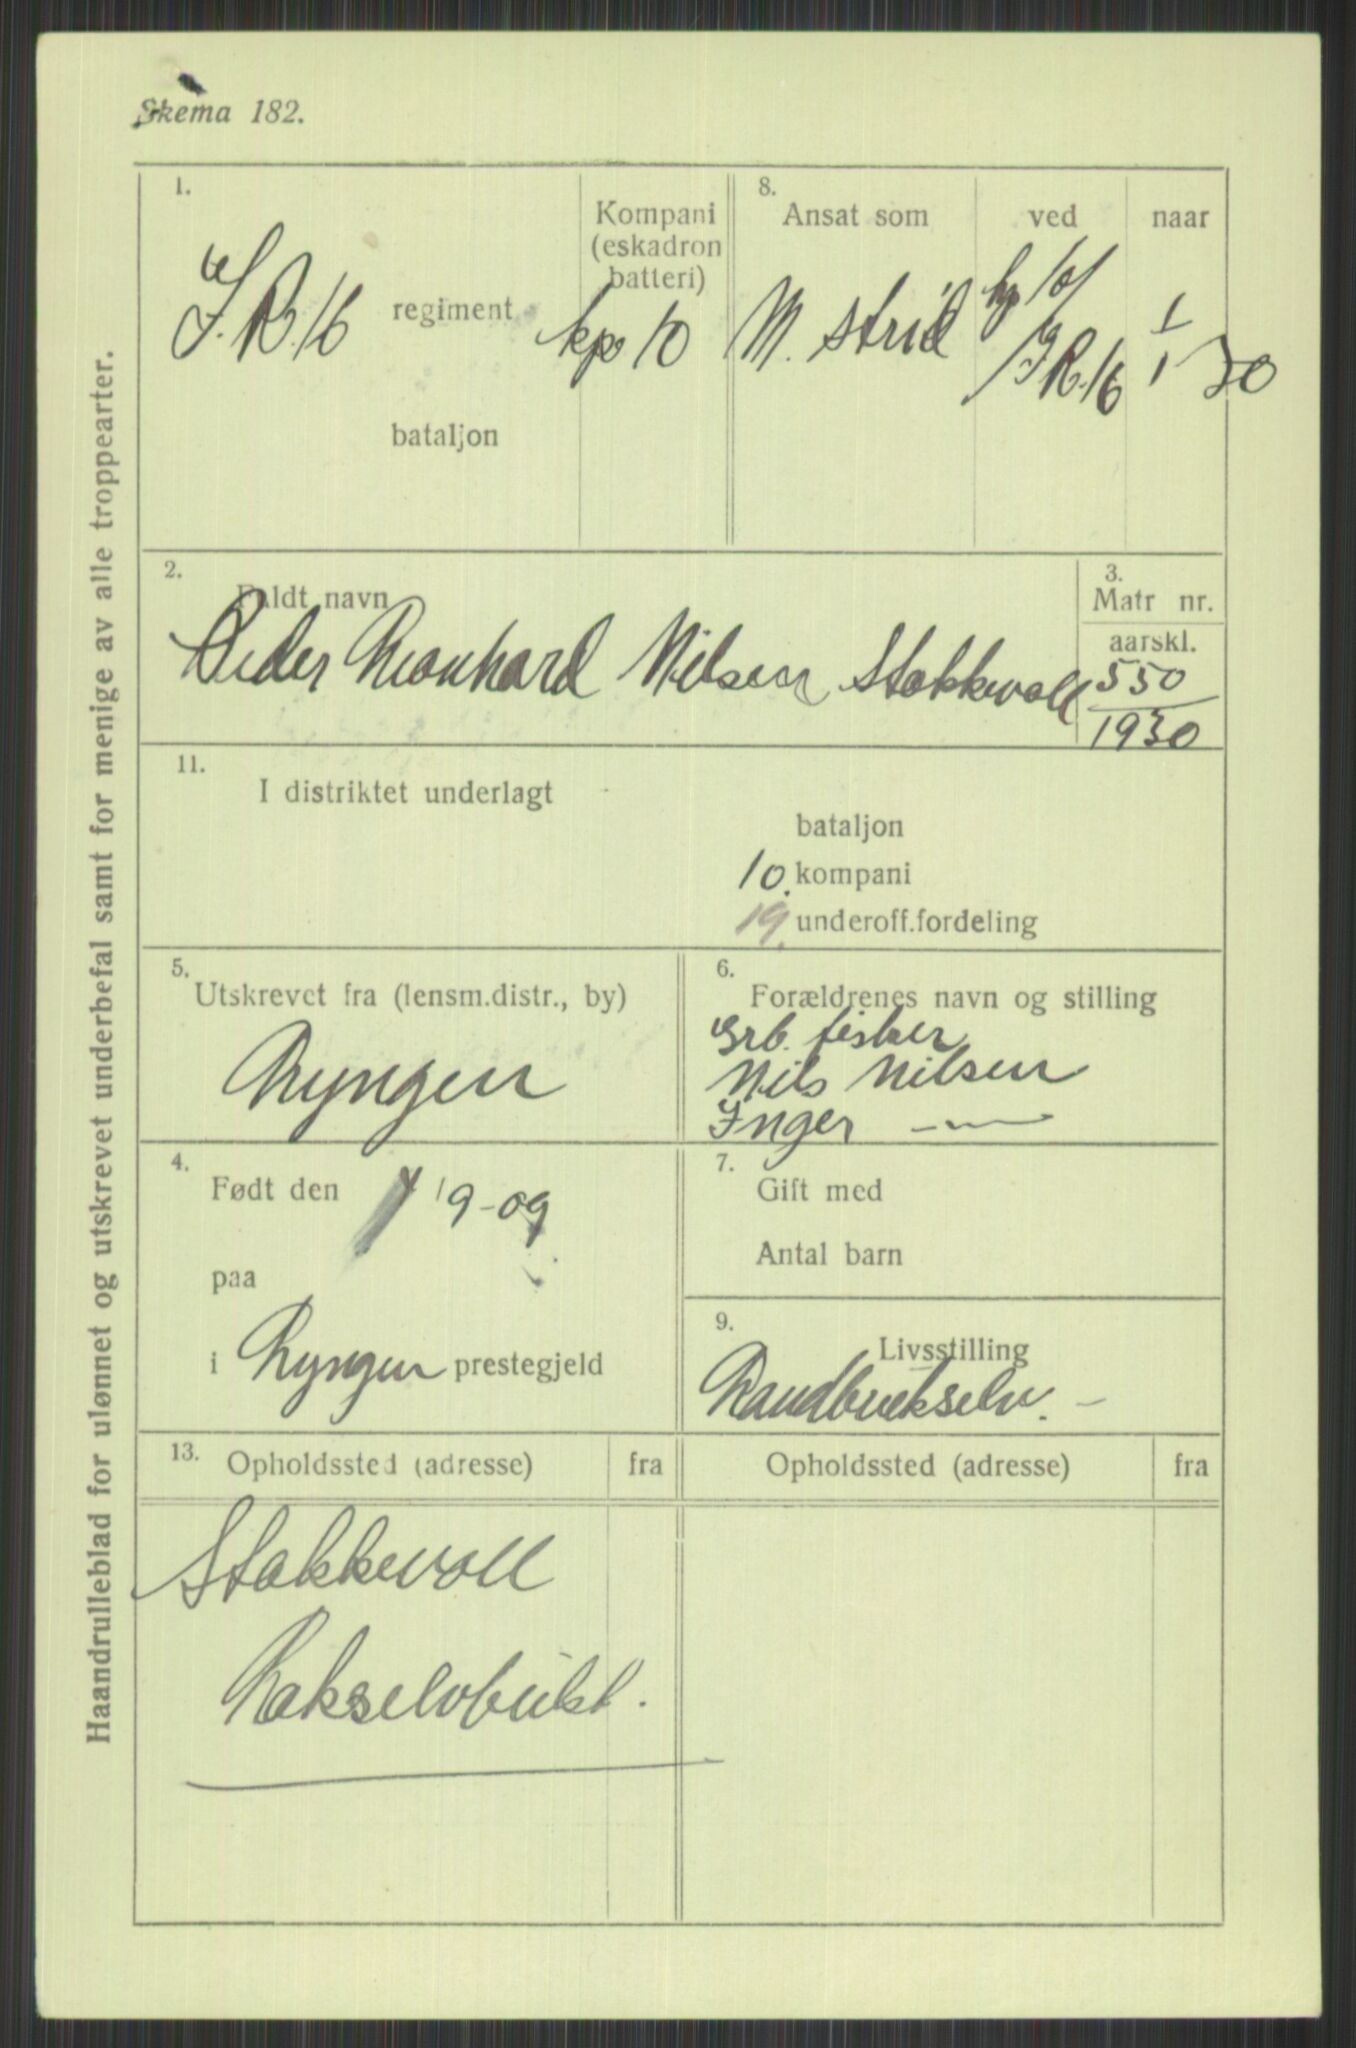 Skema 182.
Haandrulleblad for ulønnet og utskrevet underbefal samt for menige av alle troppearter.
1.
I.R. 16 regiment
bataljon
Kompani
(eskadron
batteri)
kp 10
8.
Ansat som
M. strid
ved
kp 10/
I.R. 16
naar
1/1 30
2.
Fuldt navn
Peder Leonhard Nilsen Stokkevoll
3.
Matr nr.
aarskl.
550
1930
11.
I distriktet underlagt
bataljon
10. kompani
19. underoff.fordeling
5.
Utskrevet fra (lensm.distr., by)
Lyngen
6.
Forældrenes navn og stilling
Grb. fisker
Nils Nilsen
Inger —
4.
Født den /9-09
paa
i Lyngen prestegjeld
7.
Gift med
Antal barn
9.
Livsstilling
13.
Opholdssted (adresse)
fra
Opholdssted (adresse)
fra
Stokkevoll
Lakselvbukt.